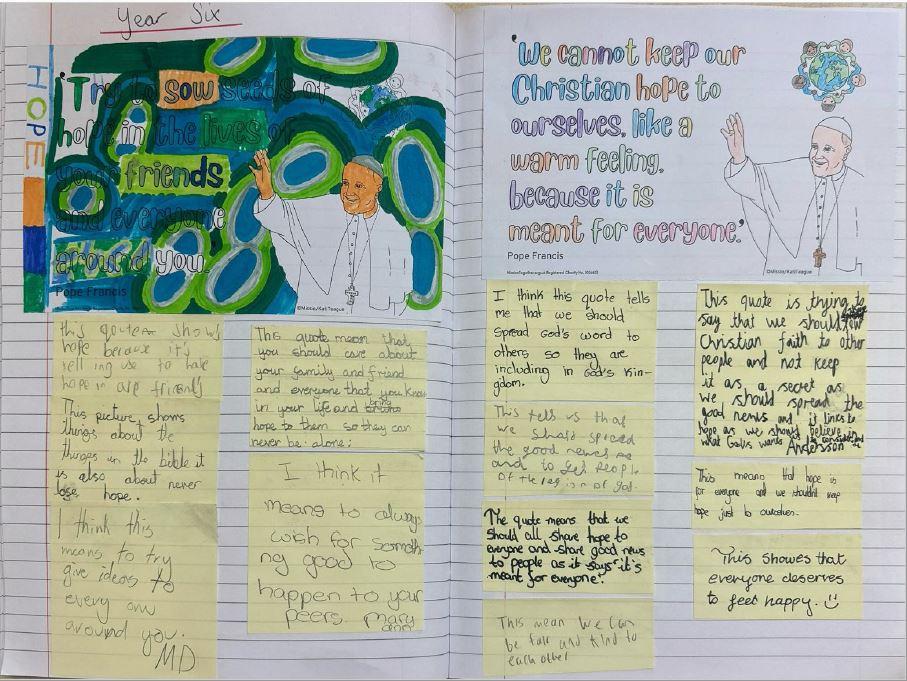 Year Six
HOPE
'Try to sow seeds of
hope in the lives of
your friends
and everyone
around you.'
Pope Francis
©Missio/KatTeague
this quote show
hope because it's
telling use to hake
hope in are friends
This picture shows
things about the
things in the bible it
is also about never
lose hope.
I think this
means to try
give ideas to
every one
around you.
MD
This quote mean that
you should care about
your family and friend
and everyone that you know
in your life and bring
hope to them so they can
never be alone.
I think it
means to always
wish for someth
ng good to
happen to your
peers. Mary
ann
'We cannot keep our
Christian hope to
ourselves, like a
warm feeling,
because it is
meant for everyone.'
Pope Francis
©Missio/KatTeague
I think this quote tells
me that we should
spread God's word to
others so they are
including in God's Kin-
gdom.
This tells us that
we should spread
the good news
and to get people
of God.
The quote means that we
should all share hope to
everyone and share good news
to people as it says "it's
meant for everyone".
This mean we can
be fair and kind to
each other
This quote is trying to
say that we should
Christian faith to other
people and not keep
it as a secret as
we should spread the
good news and it links to
hope as we should believe in
what God wants
Andersson
This means that hope is
for everyone and we shouldn't keep
hope just to ourselves.
This showes that
everyone deserves
to feel happy. ☺